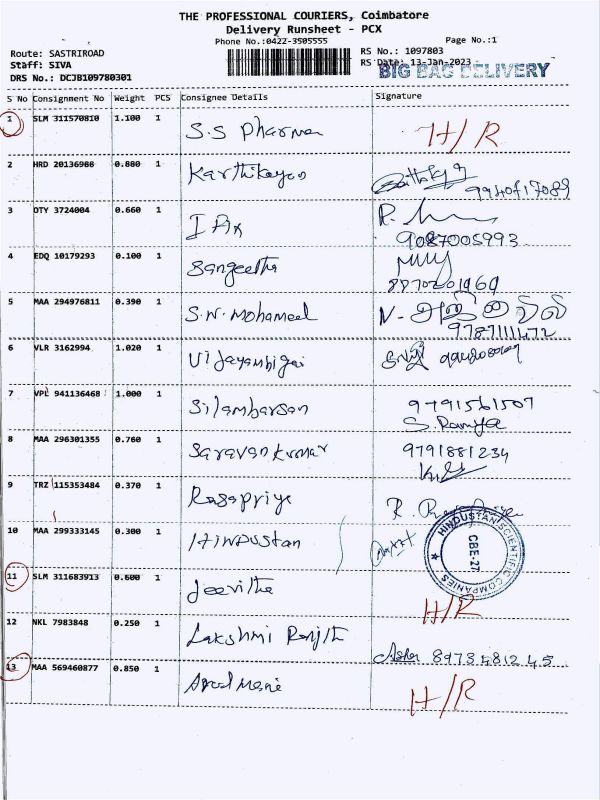 THE PROFESSIONAL COURIERS, Coimbatore
Delivery Runsheet - PCX
Phone No.:0422-3505555 Page No.:1
Route: SASTRIROAD RS No.: 1097803
Staff: SIVA RS Date: 13-Jan-2023
DRS No.: DCJB109780301 BIG BAG DELIVERY
S No Consignment No Weight PCS Consignee Details Signature
1 SLM 311570810 1.100 1 S.S Pharma H/R
2 HRD 20136988 0.880 1 Karthikeyan
9940417089
3 OTY 3724004 0.660 1
9087005993
4 EDQ 10179293 0.100 1 Sangeetha
8870201969
5 MAA 294976811 0.390 1 S.N. Mohamed
9787111472
6 VLR 3162994 1.020 1 Vijayambigai
7 VPL 941136468 1.000 1 Silambarsan 9791561507
S. Ramya
8 MAA 296301355 0.760 1 Saravankumar 9791881234
9 TRZ 115353484 0.370 1 Rasapriya
10 MAA 299333145 0.300 1 Hindustan
HINDUSTAN SCIENTIFIC COMPANIES
CBE-27
11 SLM 311683913 0.600 1 Jeevitha H/R
12 NKL 7983848 0.250 1 Lakshmi Ranjith
Asha 8973581245
13 MAA 569460877 0.850 1 H/R